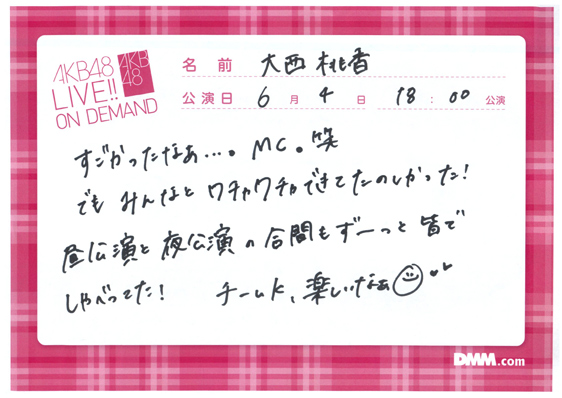 AKB48
LIVE!!
ON DEMAND
AKB
48
名前 大西桃香
公演日 6月4日 18:00公演
すごかったなぁ…。MC。笑
でも みんなと ワチャワチャできてたのしかった!
昼公演と夜公演の合間もずーっと皆で
しゃべってた! チームK、楽しいなぁ
DMM.com